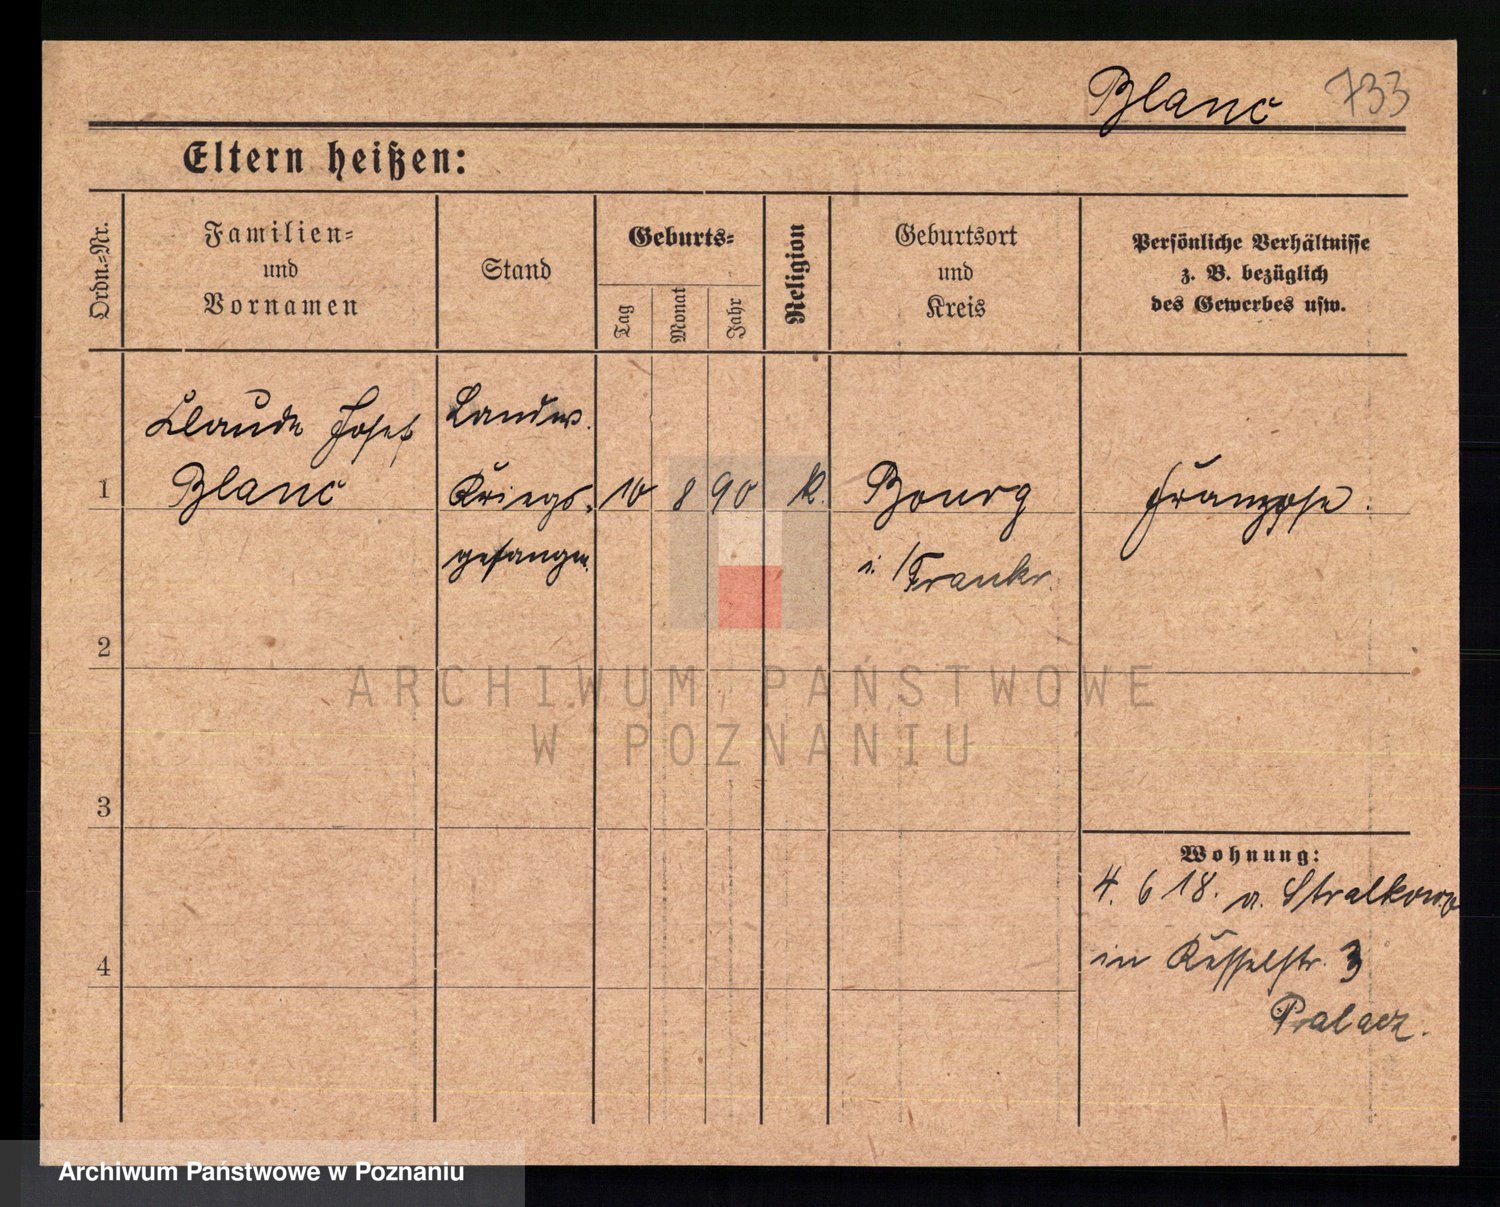 Blanc 733
Eltern heißen:
Ordn.-Nr.
Familien- und Vornamen
Stand
Geburts-
Tag
Monat
Jahr
Religion
Geburtsort und Kreis
Persönliche Verhältnisse
z. B. bezüglich
des Gewerbes usw.
Claude Josef Landw.
1 Blanc Kriegs- 10 8 90 k. Bourg Franzose.
gefangen. i. Frankr.
2
ARCHIWUM PAŃSTWOWE
W POZNANIU
3
Wohnung:
4. 6 18. a. Stralkowo
4 in Kesselstr. 3
Pralacz.
Archiwum Państwowe w Poznaniu